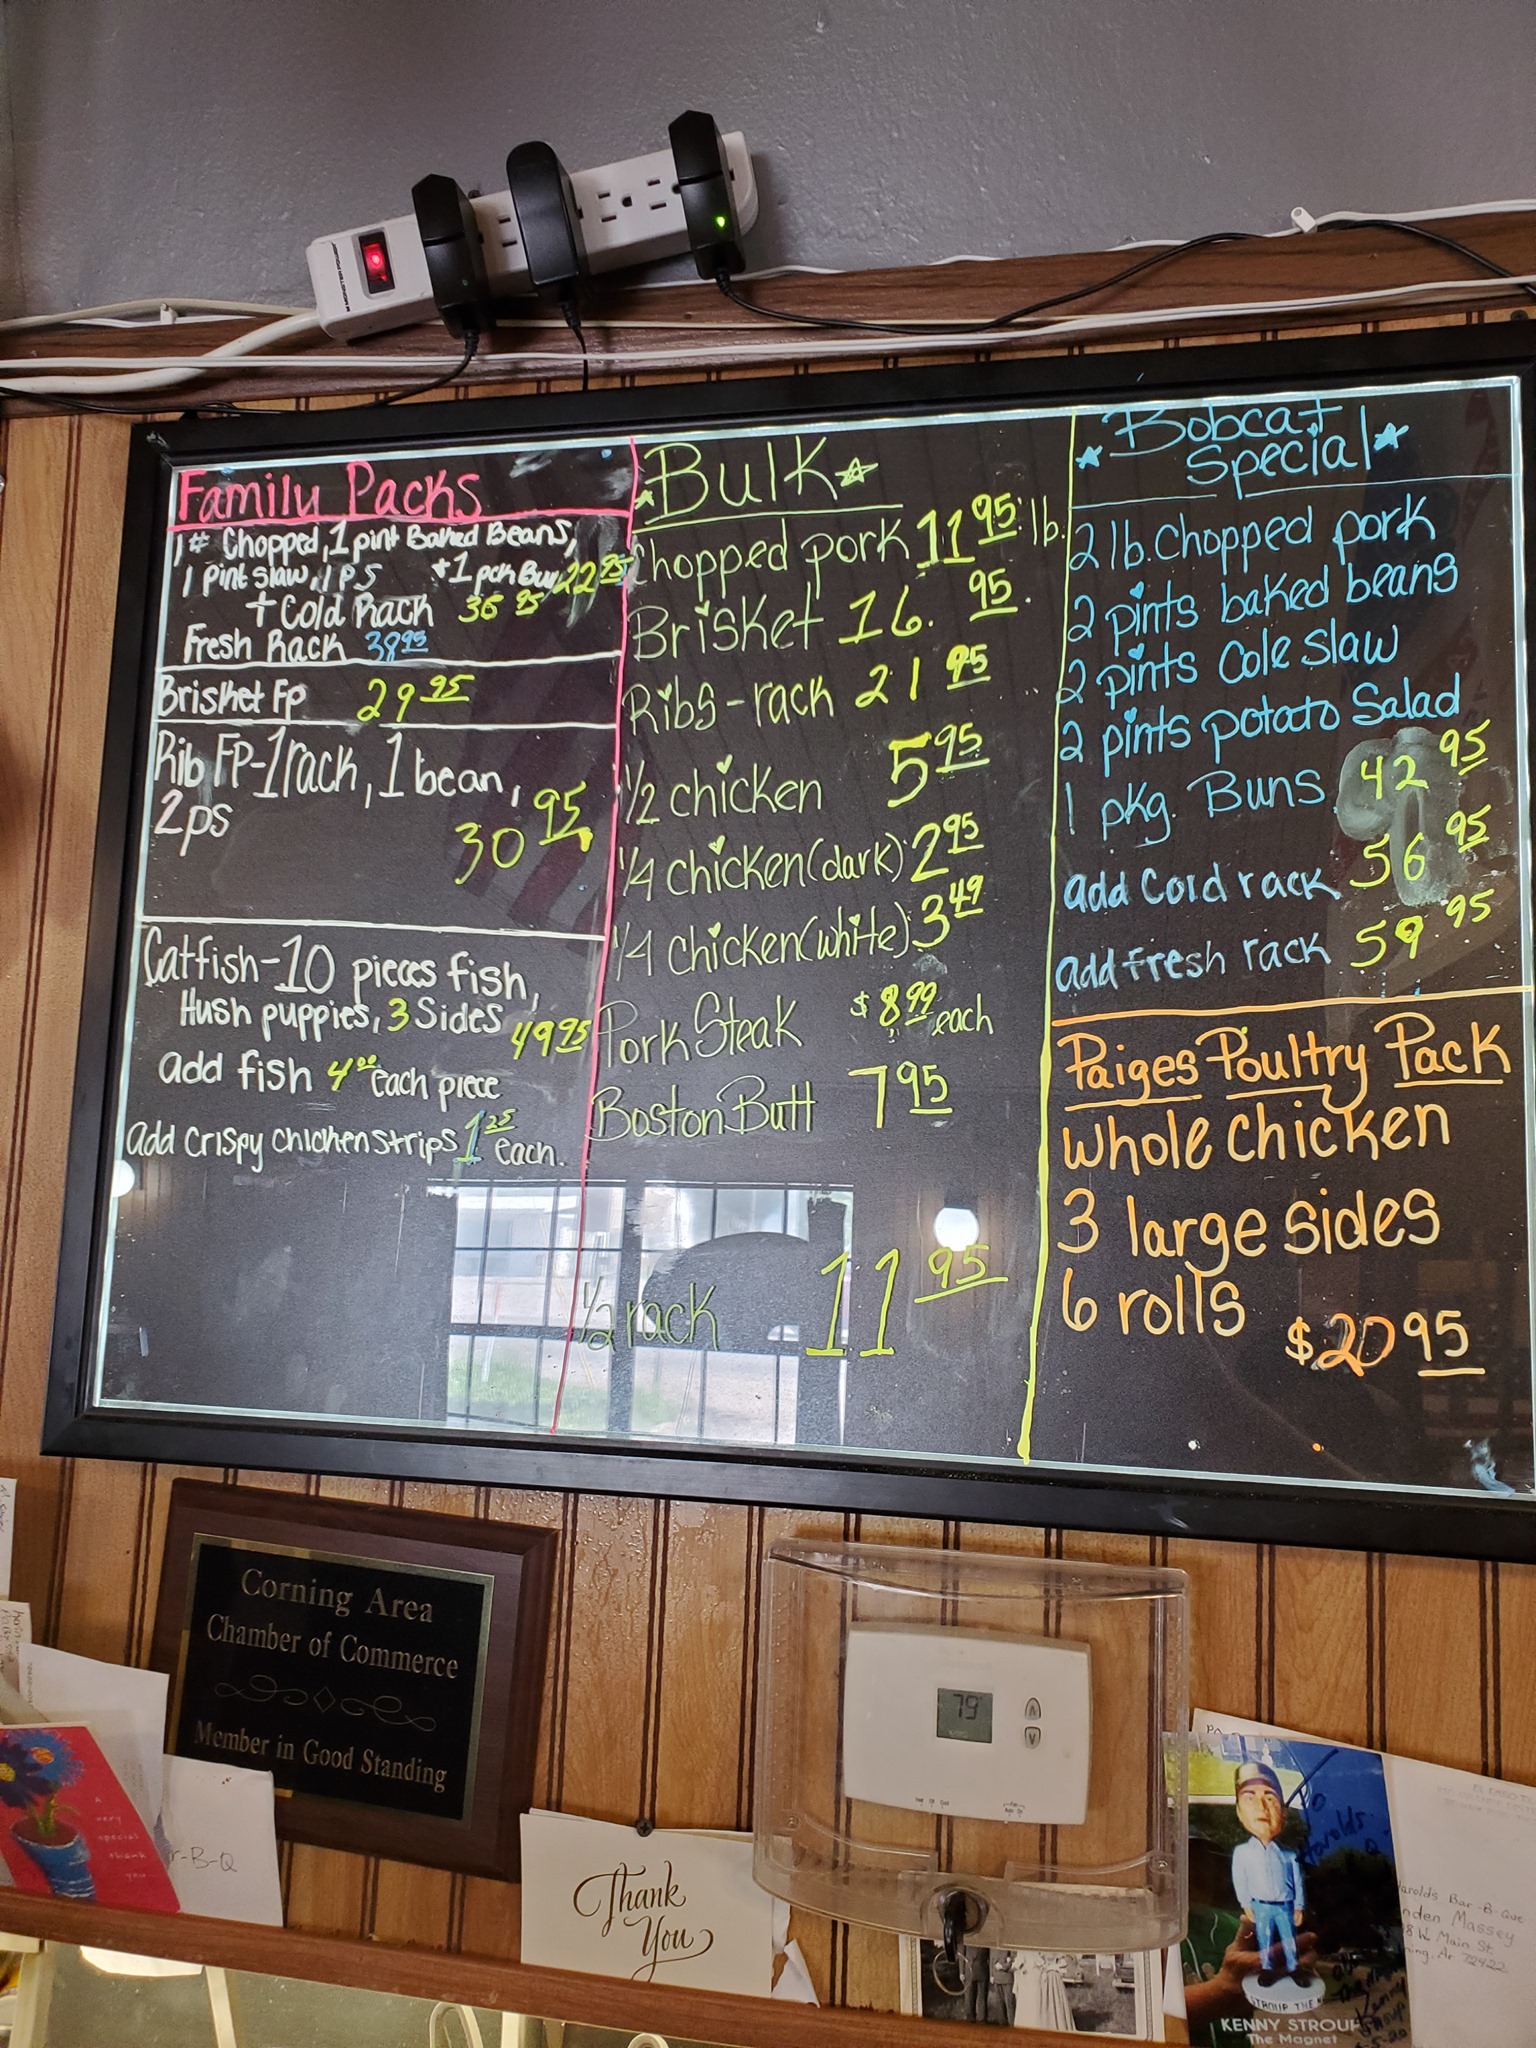 MONSTER POWER
Family Packs
1# Chopped, 1 pint Baked Beans,
1 pint slaw, 1 PS + 1 pck Bun 22 95
+ Cold Rack 36 95
Fresh Rack 38 95
Brisket Fp 29 95
Rib FP-1 rack, 1 bean,
2 ps
30 95
Catfish-10 pieces fish,
Hush puppies, 3 Sides 49 95
add fish 4 00 each piece
add Crispy chicken strips 1 25 each.
Bulk
Chopped pork 11 95 lb.
Brisket 16. 95
Ribs-rack 21 95
1/2 chicken 5 95
1/4 chicken (dark) 2 95
1/4 chicken (white) 3 49
Pork Steak $8 99 each
Boston Butt 7 95
1/2 rack 11 95
Bobcat
Special
2 lb. Chopped pork
2 pints baked beans
2 pints Cole slaw
2 pints potato Salad
1 pkg. Buns 42 95
add Cold rack 56 95
add fresh rack 59 95
Paiges Poultry Pack
whole chicken
3 large sides
6 rolls
$20 95
Corning Area
Chamber of Commerce
Member in Good Standing
79°
A
very
special
thank
you
r-B-Q
Thank
You
To
Harolds
KENNY STROUP
The Magnet
arold's Bar-B-Que
nden Massey
W Main St.
ning, Ar 72422